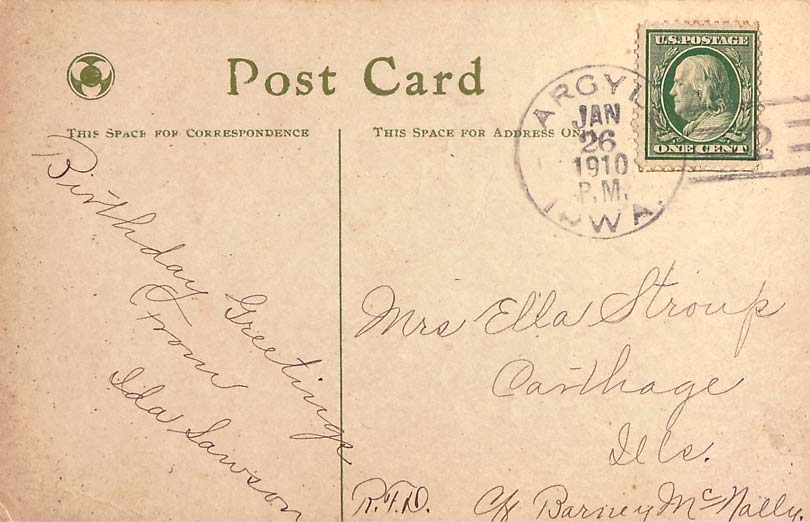 Post Card
THIS SPACE FOR CORRESPONDENCE
THIS SPACE FOR ADDRESS ONLY
U.S. POSTAGE
ONE CENT
ARGYL
JAN
26
1910
P.M.
IOWA.
2
Birthday Greetings
From
Ida Lawson
Mrs Ella Stroup
Carthage
Ills.
R.F.D. C/o Barney McNally.